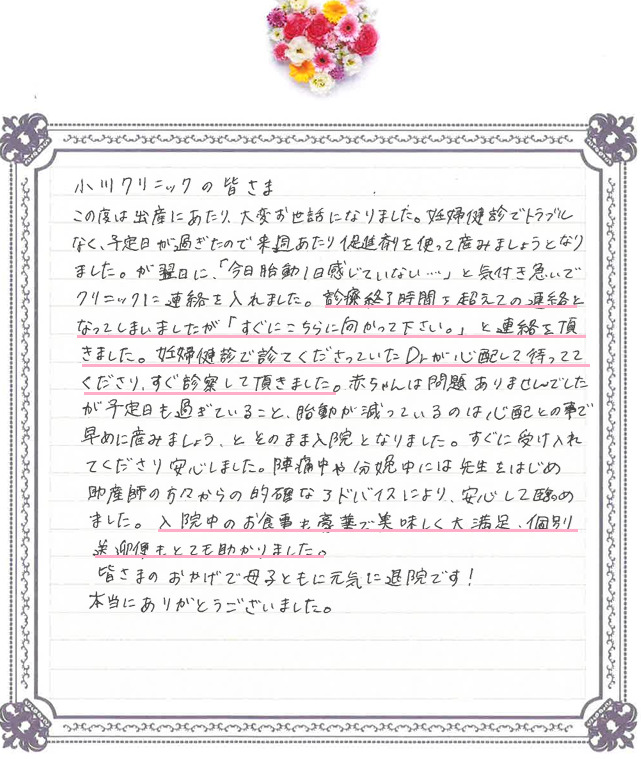 小川クリニックの皆さま
この度は出産にあたり、大変お世話になりました。妊婦健診でトラブル
なく、予定日が過ぎたので来週あたり促進剤を使って産みましょうとなり
ました。が翌日に、「今日胎動1日感じていない…」と気付き急いで
クリニックに連絡を入れました。診療終了時間を超えての連絡と
なってしまいましたが「すぐにこちらに向かって下さい。」と連絡を頂
きました。妊婦健診で診てくださっていたDrが心配して待ってて
くださり、すぐ診察して頂きました。赤ちゃんは問題ありませんでした
が予定日も過ぎていること、胎動が減っているのは心配との事で
早めに産みましょう、とそのまま入院となりました。すぐに受け入れ
てくださり安心しました。陣痛中や分娩中には先生をはじめ
助産師の方々からの的確なアドバイスにより、安心して臨め
ました。入院中のお食事も豪華で美味しく大満足、個別
送迎便もとても助かりました。
皆さまのおかげで母子ともに元気に退院です！
本当にありがとうございました。